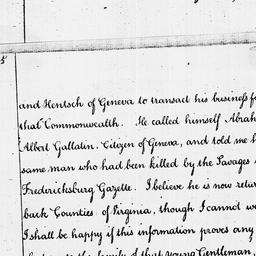 5
and Hentsch of Geneva to transact his business f
that Commonwealth. He called himself Abrah
Albert Gallatin, Citizen of Geneva, and told me h
same man who had been killed by the Savages
Fredericksburg Gazette. I believe he is now retur
back Counties of Virginia, though I cannot w
I shall be happy if this information proves any
the family of that young Gentleman,